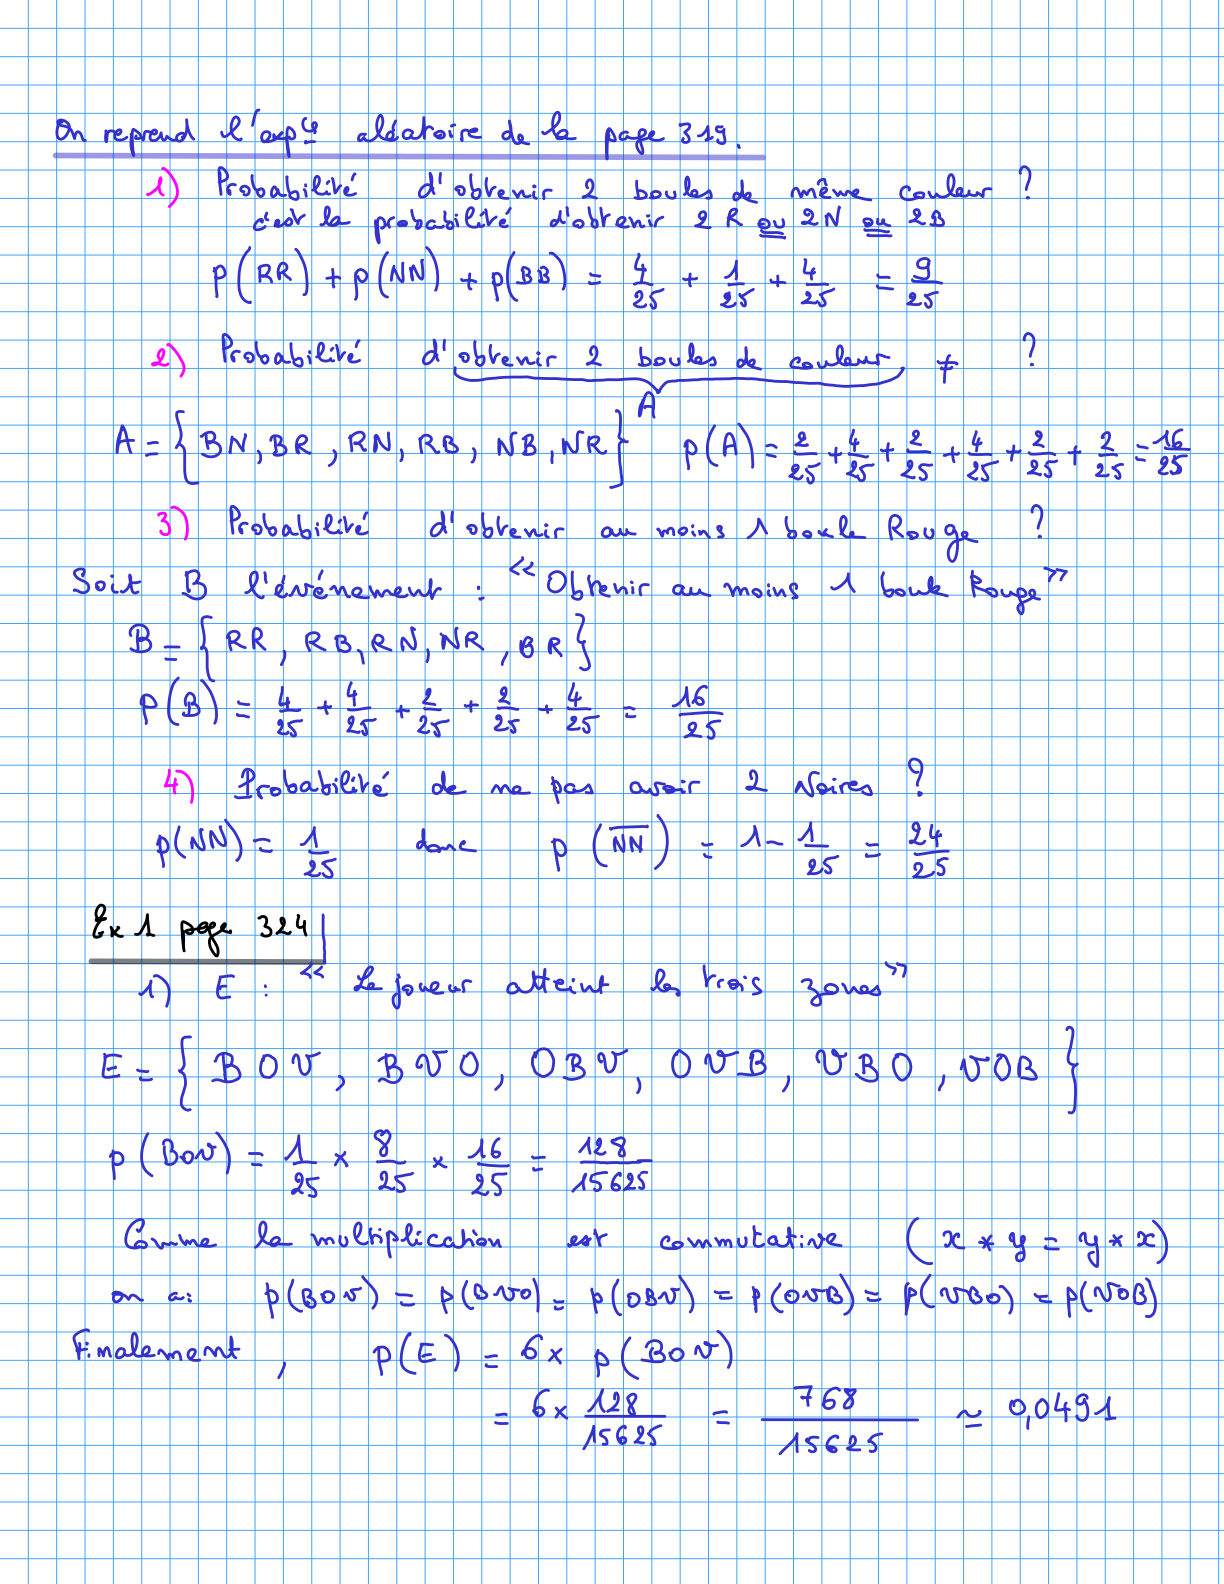 On reprend l'expce aléatoire de la page 319.
1) Probabilité d'obtenir 2 boules de même couleur ?
c'est la probabilité d'obtenir 2 R ou 2N ou 2B
p(RR) + p(NN) + p(BB) = 4/25 + 1/25 + 4/25 = 9/25
2) Probabilité d'obtenir 2 boules de couleur ≠ ?
A
A = {BN, BR, RN, RB, NB, NR} p(A) = 2/25 + 4/25 + 2/25 + 4/25 + 2/25 + 2/25 = 16/25
3) Probabilité d'obtenir au moins 1 boule Rouge ?
Soit B l'événement : « Obtenir au moins 1 boule Rouge »
B = {RR, RB, RN, NR, BR}
p(B) = 4/25 + 4/25 + 2/25 + 2/25 + 4/25 = 16/25
4) Probabilité de ne pas avoir 2 Noires ?
p(NN) = 1/25 donc p(N̅N̅) = 1 - 1/25 = 24/25
Ex 1 page 324
1) E : « Le joueur atteint les trois zones »
E = {BOV, BVO, OBV, OVB, VBO, VOB}
p(BOV) = 1/25 × 8/25 × 16/25 = 128/15625
Comme la multiplication est commutative (x * y = y * x)
on a: p(BOV) = p(BVO) = p(OBV) = p(OVB) = p(VBO) = p(VOB)
Finalement, p(E) = 6 × p(BOV)
= 6 × 128/15625 = 768/15625 ≃ 0,0491